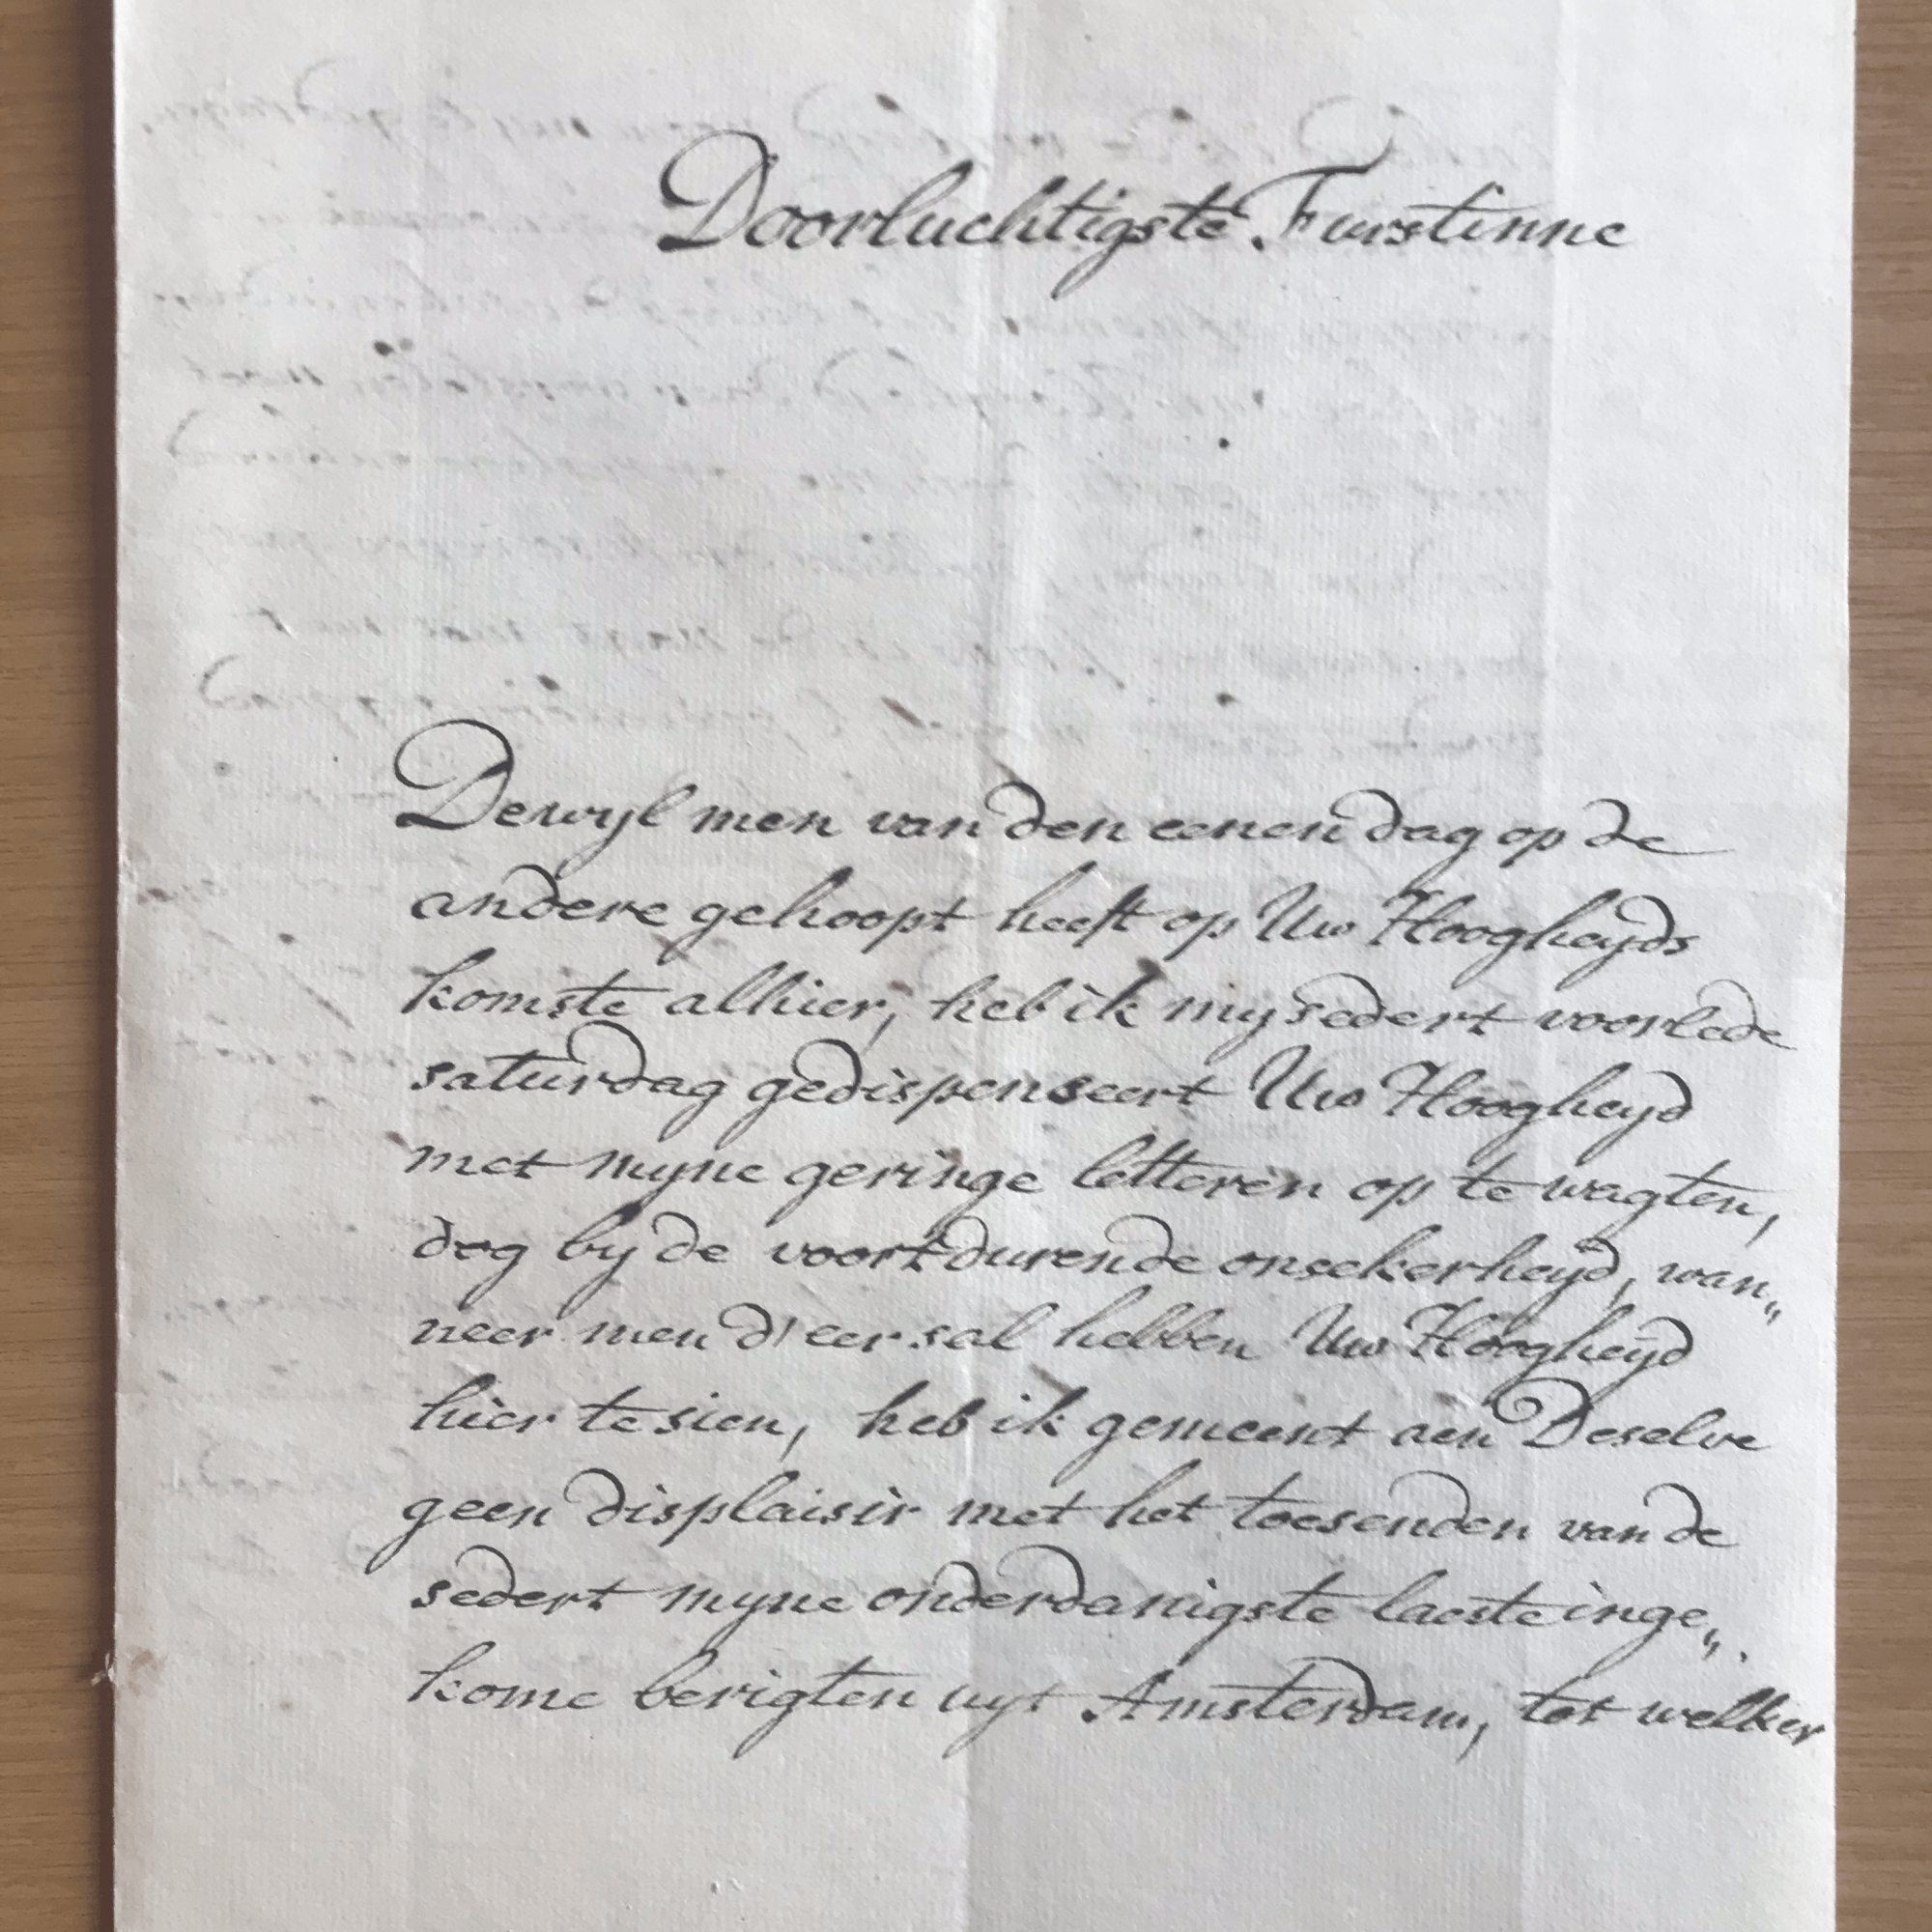 Doorluchtigste Furstinne
Dewyl men van den eenen dag op de
andere gehoopt heeft op Uw Hoogheyds
komste alhier, heb ik my sedert voorlede
saturdag gedispenseert Uw Hoogheyd
met myne geringe letteren op te wagten,
dog by de voortdurende onsekerheyd, wan„
neer men d'eer sal hebben Uw Hoogheyd
hier te sien, heb ik gemeent aen Deselve
geen displaisir met het toesenden van de
sedert myne onderdanigste laeste inge„
kome berigten uyt Amsterdam, tot welker